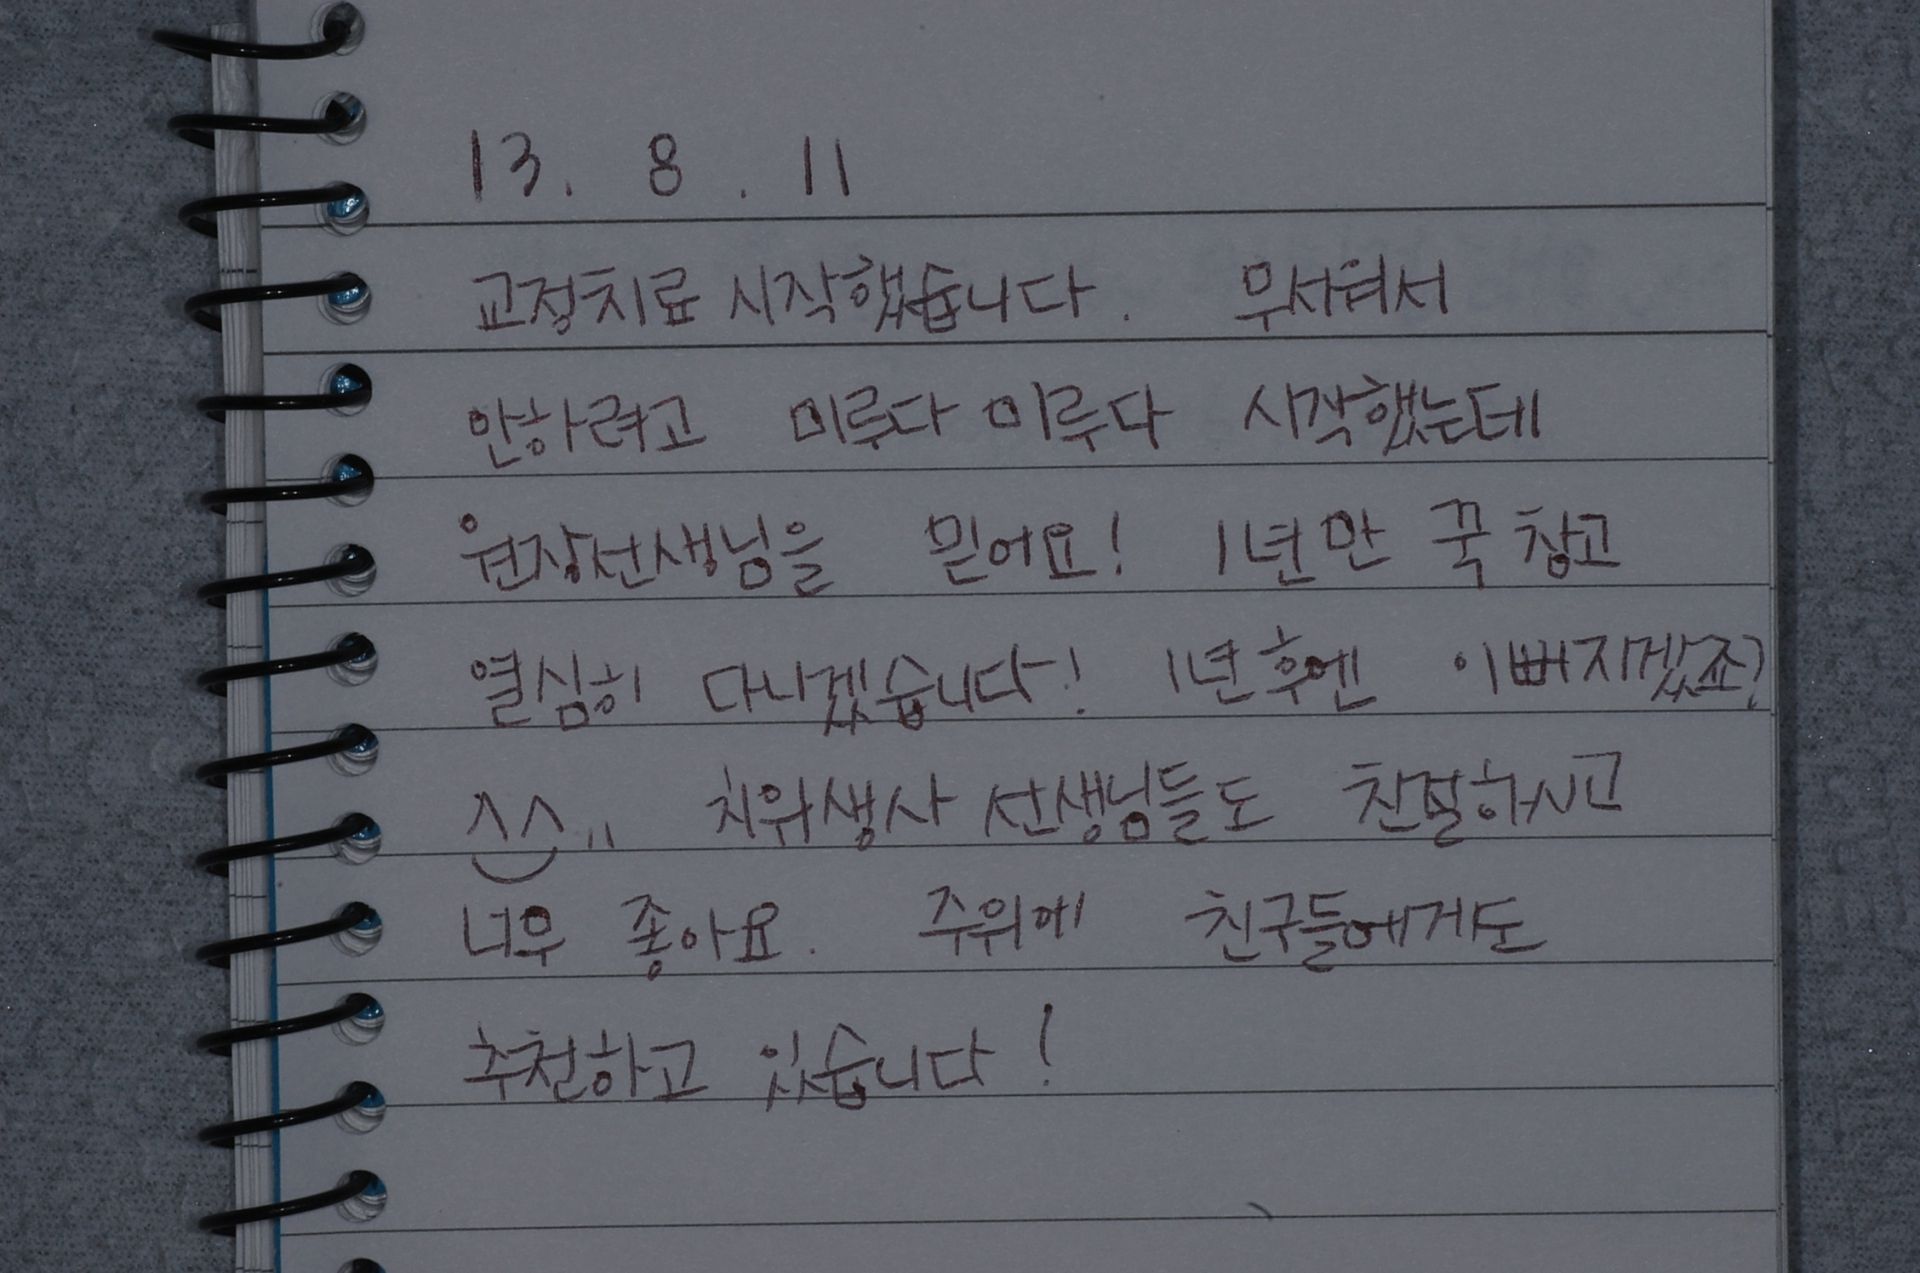 13. 8. 11
교정치료 시작했습니다. 무서워서
안하려고 미루다 미루다 시작했는데
원장선생님을 믿어요! 1년만 꾹 참고
열심히 다니겠습니다! 1년후엔 이뻐지겠죠?
^^,, 치위생사 선생님들도 친절하시고
너무 좋아요. 주위에 친구들에게도
추천하고 있습니다!